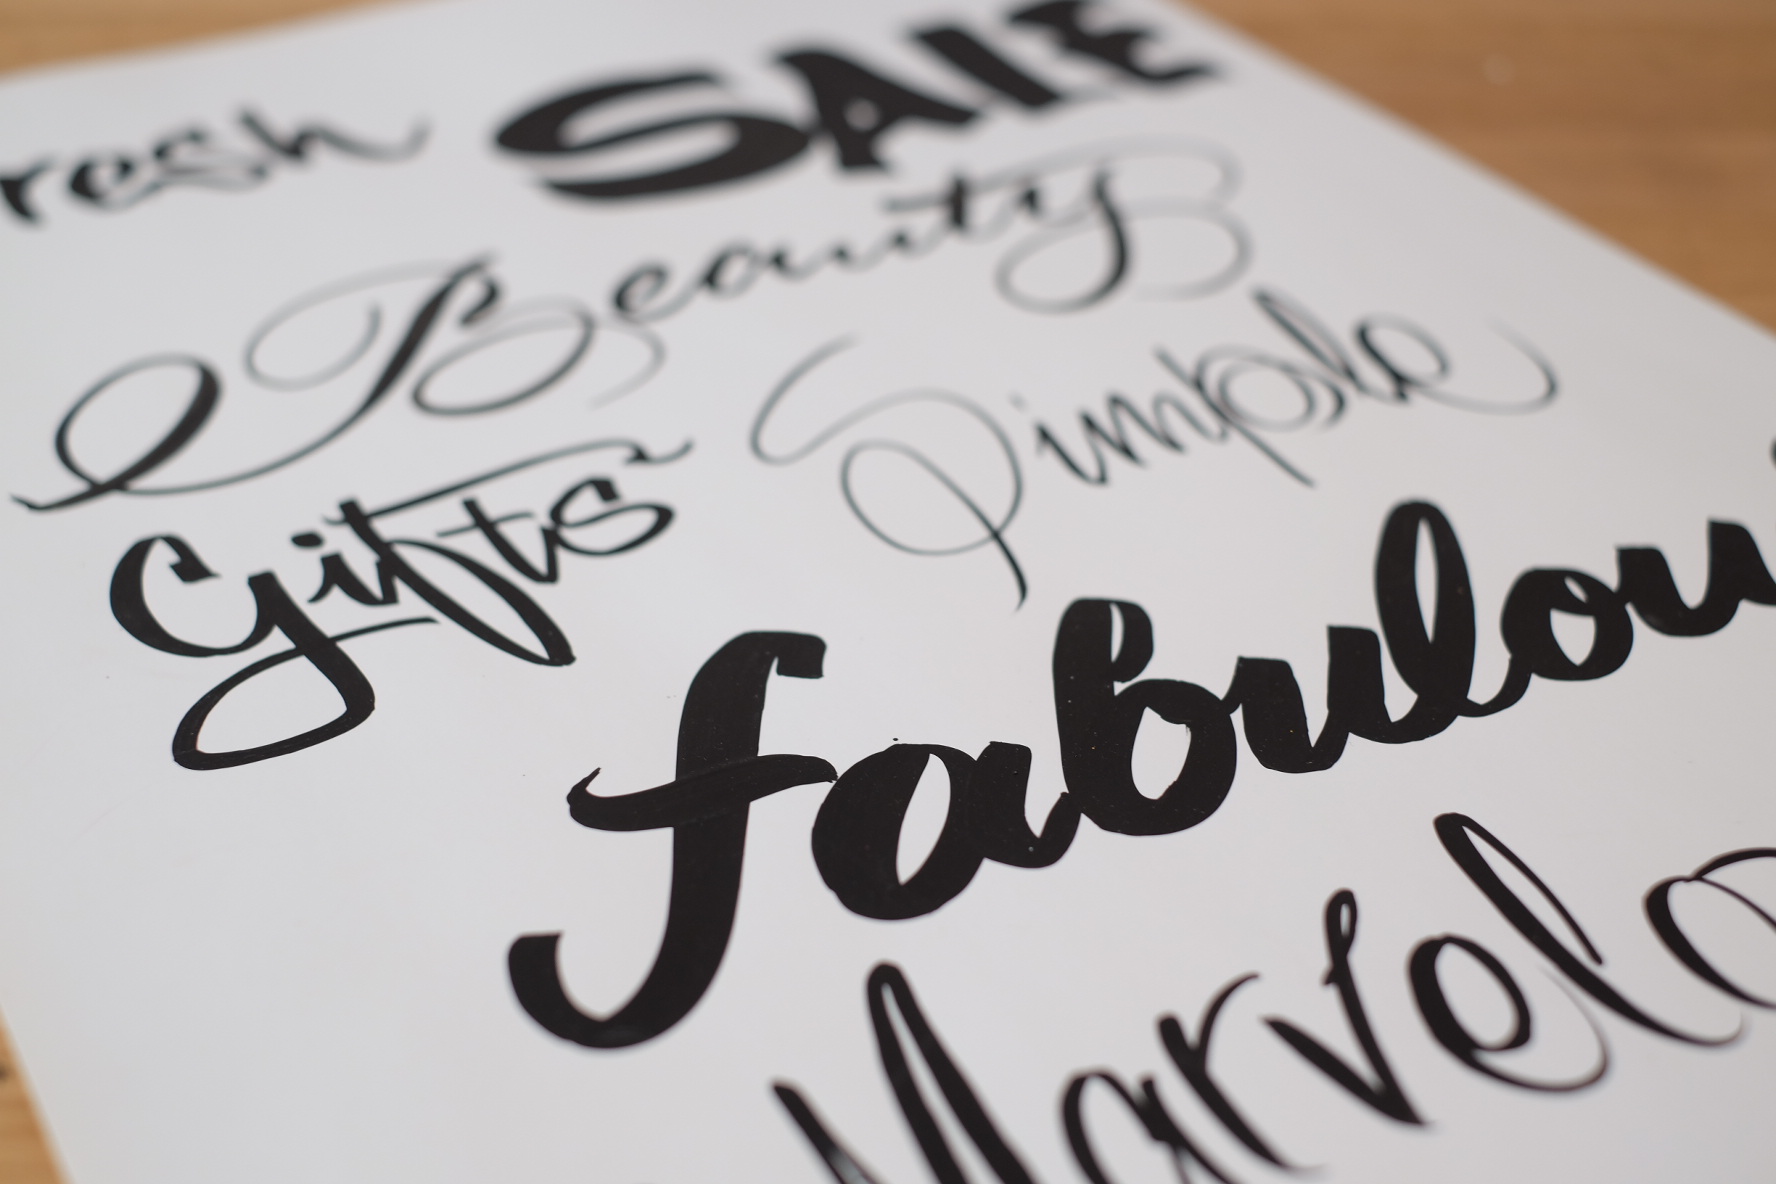 resh SALE
Beauty
Gifts Simple
fabulou
Marvelo